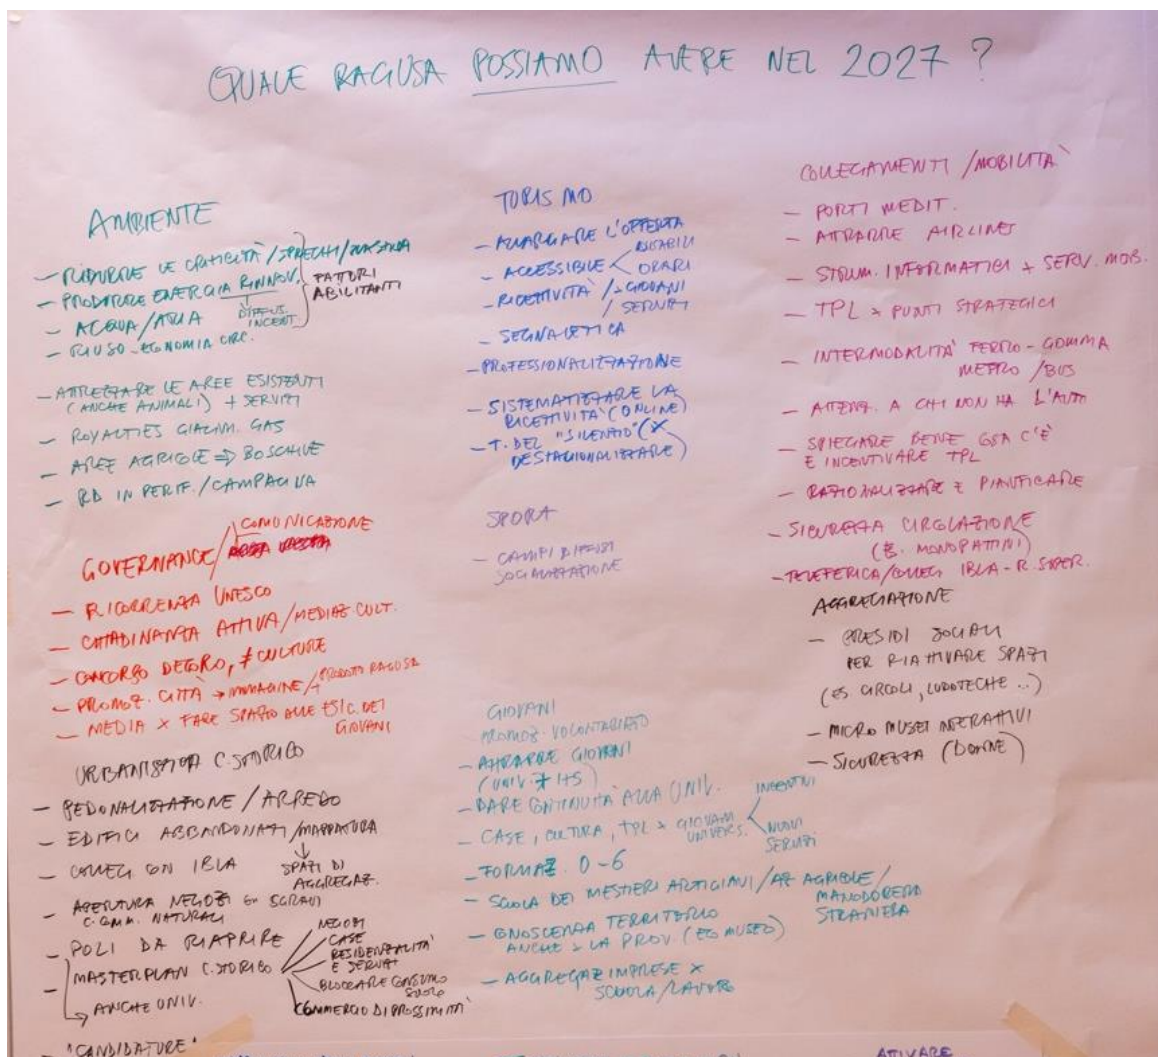 QUALE RAGUSA POSSIAMO AVERE NEL 2027 ?
AMBIENTE
- RIDURRE LE CRITICITÀ / SPRECHI /
- PRODURRE ENERGIA RINNOV.
DIFFUS.
INCENT.
FATTORI
ABILITANTI
- ACQUA / ARIA
- RIUSO - ECONOMIA CIRC.
- ATTREZZARE LE AREE ESISTENTI
(ANCHE ANIMALI) + SERVIZI
- ROYALTIES GIACIM. GAS
- AREE AGRICOLE => BOSCHIVE
- RD IN PERIF. / CAMPAGNA
GOVERNANCE / COMUNICAZIONE
- RICORRENZA UNESCO
- CITTADINANZA ATTIVA / MEDIAZ CULT.
- CONCORSO DECORO, ≠ CULTURE
- PROMOZ. CITTÀ → IMMAGINE / PRODOTTI RAGUSA
- MEDIA X FARE SPAZIO ALLE ESIG. DEI
GIOVANI
URBANISTICA C. STORICO
- PEDONALIZZAZIONE / ARREDO
- EDIFICI ABBANDONATI / MAPPATURA
↓
SPAZI DI
AGGREGAZ.
- COLLEG CON IBLA
- APERTURA NEGOZI CON SGRAVI
C. COMM. NATURALI
- POLI DA RIAPRIRE
- MASTERPLAN C. STORICO
NEGOZI
CASE
RESIDENZIALITÀ
E SERVIZI
BLOCCARE CONSUMO
SUOLO
COMMERCIO DI PROSSIMITÀ
→ ANCHE UNIV.
- "CANDIDATURE"
TURISMO
- ALLARGARE L'OFFERTA
- ACCESSIBILE < DISABILI
ORARI
- RICETTIVITÀ / X GIOVANI
/ SERVIZI
- SEGNALETICA
- PROFESSIONALIZZAZIONE
- SISTEMATIZZARE LA
RICETTIVITÀ (ONLINE)
- T. DEL "SILENZIO" (X
DESTAGIONALIZZARE)
SPORT
- CAMPI DIFFUSI
SOCIALIZZAZIONE
GIOVANI
PROMOZ. VOLONTARIATO
- ATTRARRE GIOVANI
(UNIV. ≠ ITS)
- DARE CONTINUITÀ ALLA UNIV.
- CASE, CULTURA, TPL X GIOVANI
UNIVERS.
INCENTIVI
NUOVI
SERVIZI
- FORMAZ. 0-6
- SCUOLA DEI MESTIERI ARTIGIANI / AZ AGRICOLE /
MANODOPERA
STRANIERA
- CONOSCENZA TERRITORIO
ANCHE X LA PROV. (ECOMUSEO)
- AGGREGAZ IMPRESE X
SCUOLA / LAVORO
COLLEGAMENTI / MOBILITÀ
- PORTI MEDIT.
- ATTRARRE AIRLINES
- STRUM. INFORMATICI + SERV. MOB.
- TPL X PUNTI STRATEGICI
- INTERMODALITÀ FERRO - GOMMA
METRO / BUS
- ATTENZ. A CHI NON HA L'AUTO
- SPIEGARE BENE COSA C'È
E INCENTIVARE TPL
- RAZIONALIZZARE E PIANIFICARE
- SICUREZZA CIRCOLAZIONE
(ES. MONOPATTINI)
- TELEFERICA / COLLEG IBLA - R. SUPER.
AGGREGAZIONE
- PRESIDI SOCIALI
PER RIATTIVARE SPAZI
(ES CIRCOLI, LUDOTECHE ..)
- MICRO MUSEI INTERATTIVI
- SICUREZZA (DONNE)